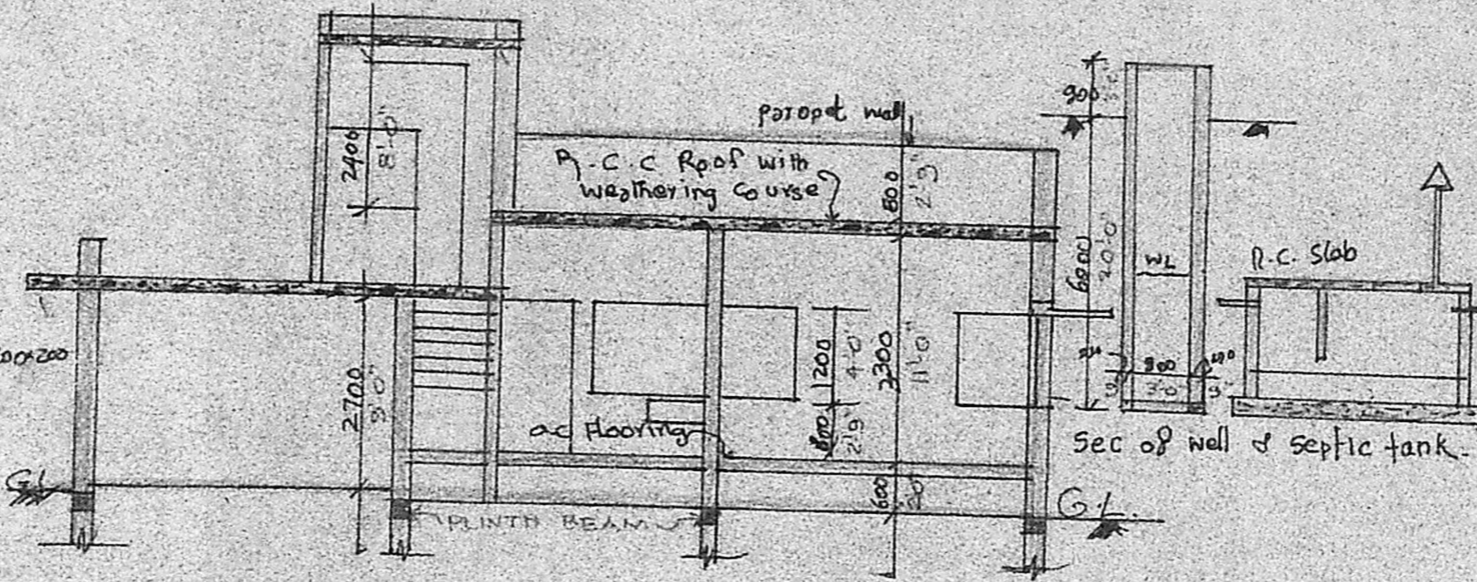 paropet wall
R.C.C Roof with
weathering course
2400
8'-0"
800
2'9"
900
6000
20'-0"
WL
R.C. Slab
2700
9'-0"
1200
4'-0"
3300
11'-0"
800
2'9"
900
3'0"
9"
600
2'0"
flooring
sec of well & septic tank.
G.L
PLINTH BEAM
G.L.